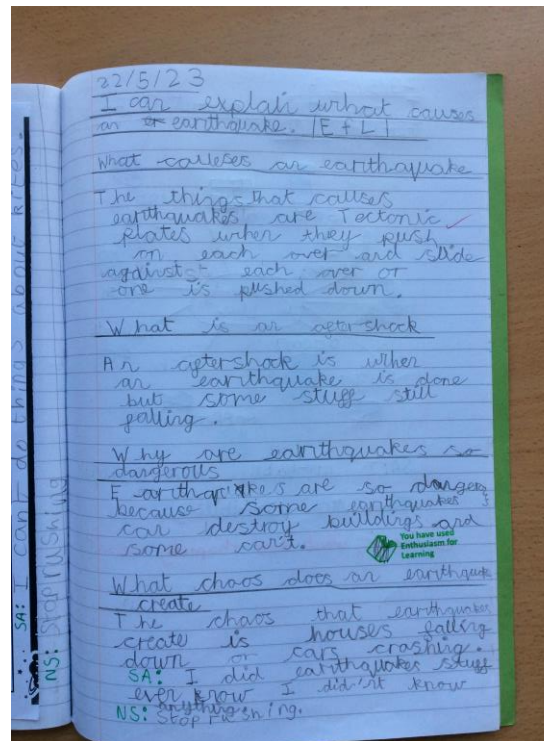 22/5/23
I can explain what causes
an earthquake. |E + L|
What causeses an earithquake
The things that causes
earithquakes are Tectonic
plates when they push
on each over and slide
against each over or
one is pushed down.
What is an aftershock
An aftershock is when
an earithquake is done
but some stuff still
falling.
Why are earithquakes so
dangerous
Earithquakes are so
because some earithquakes
can destroy buildings and
some can't.
You have used
Enthusiasm for
Learning
What chaos does an earithquake
create
The chaos that earithquakes
create is houses falling
down or cars crashing.
SA: I did earithquakes stuff
even know I did'nt know
anything.
NS: Stop rushing.
SA: I can't do things about kites.
NS: Stop rushing